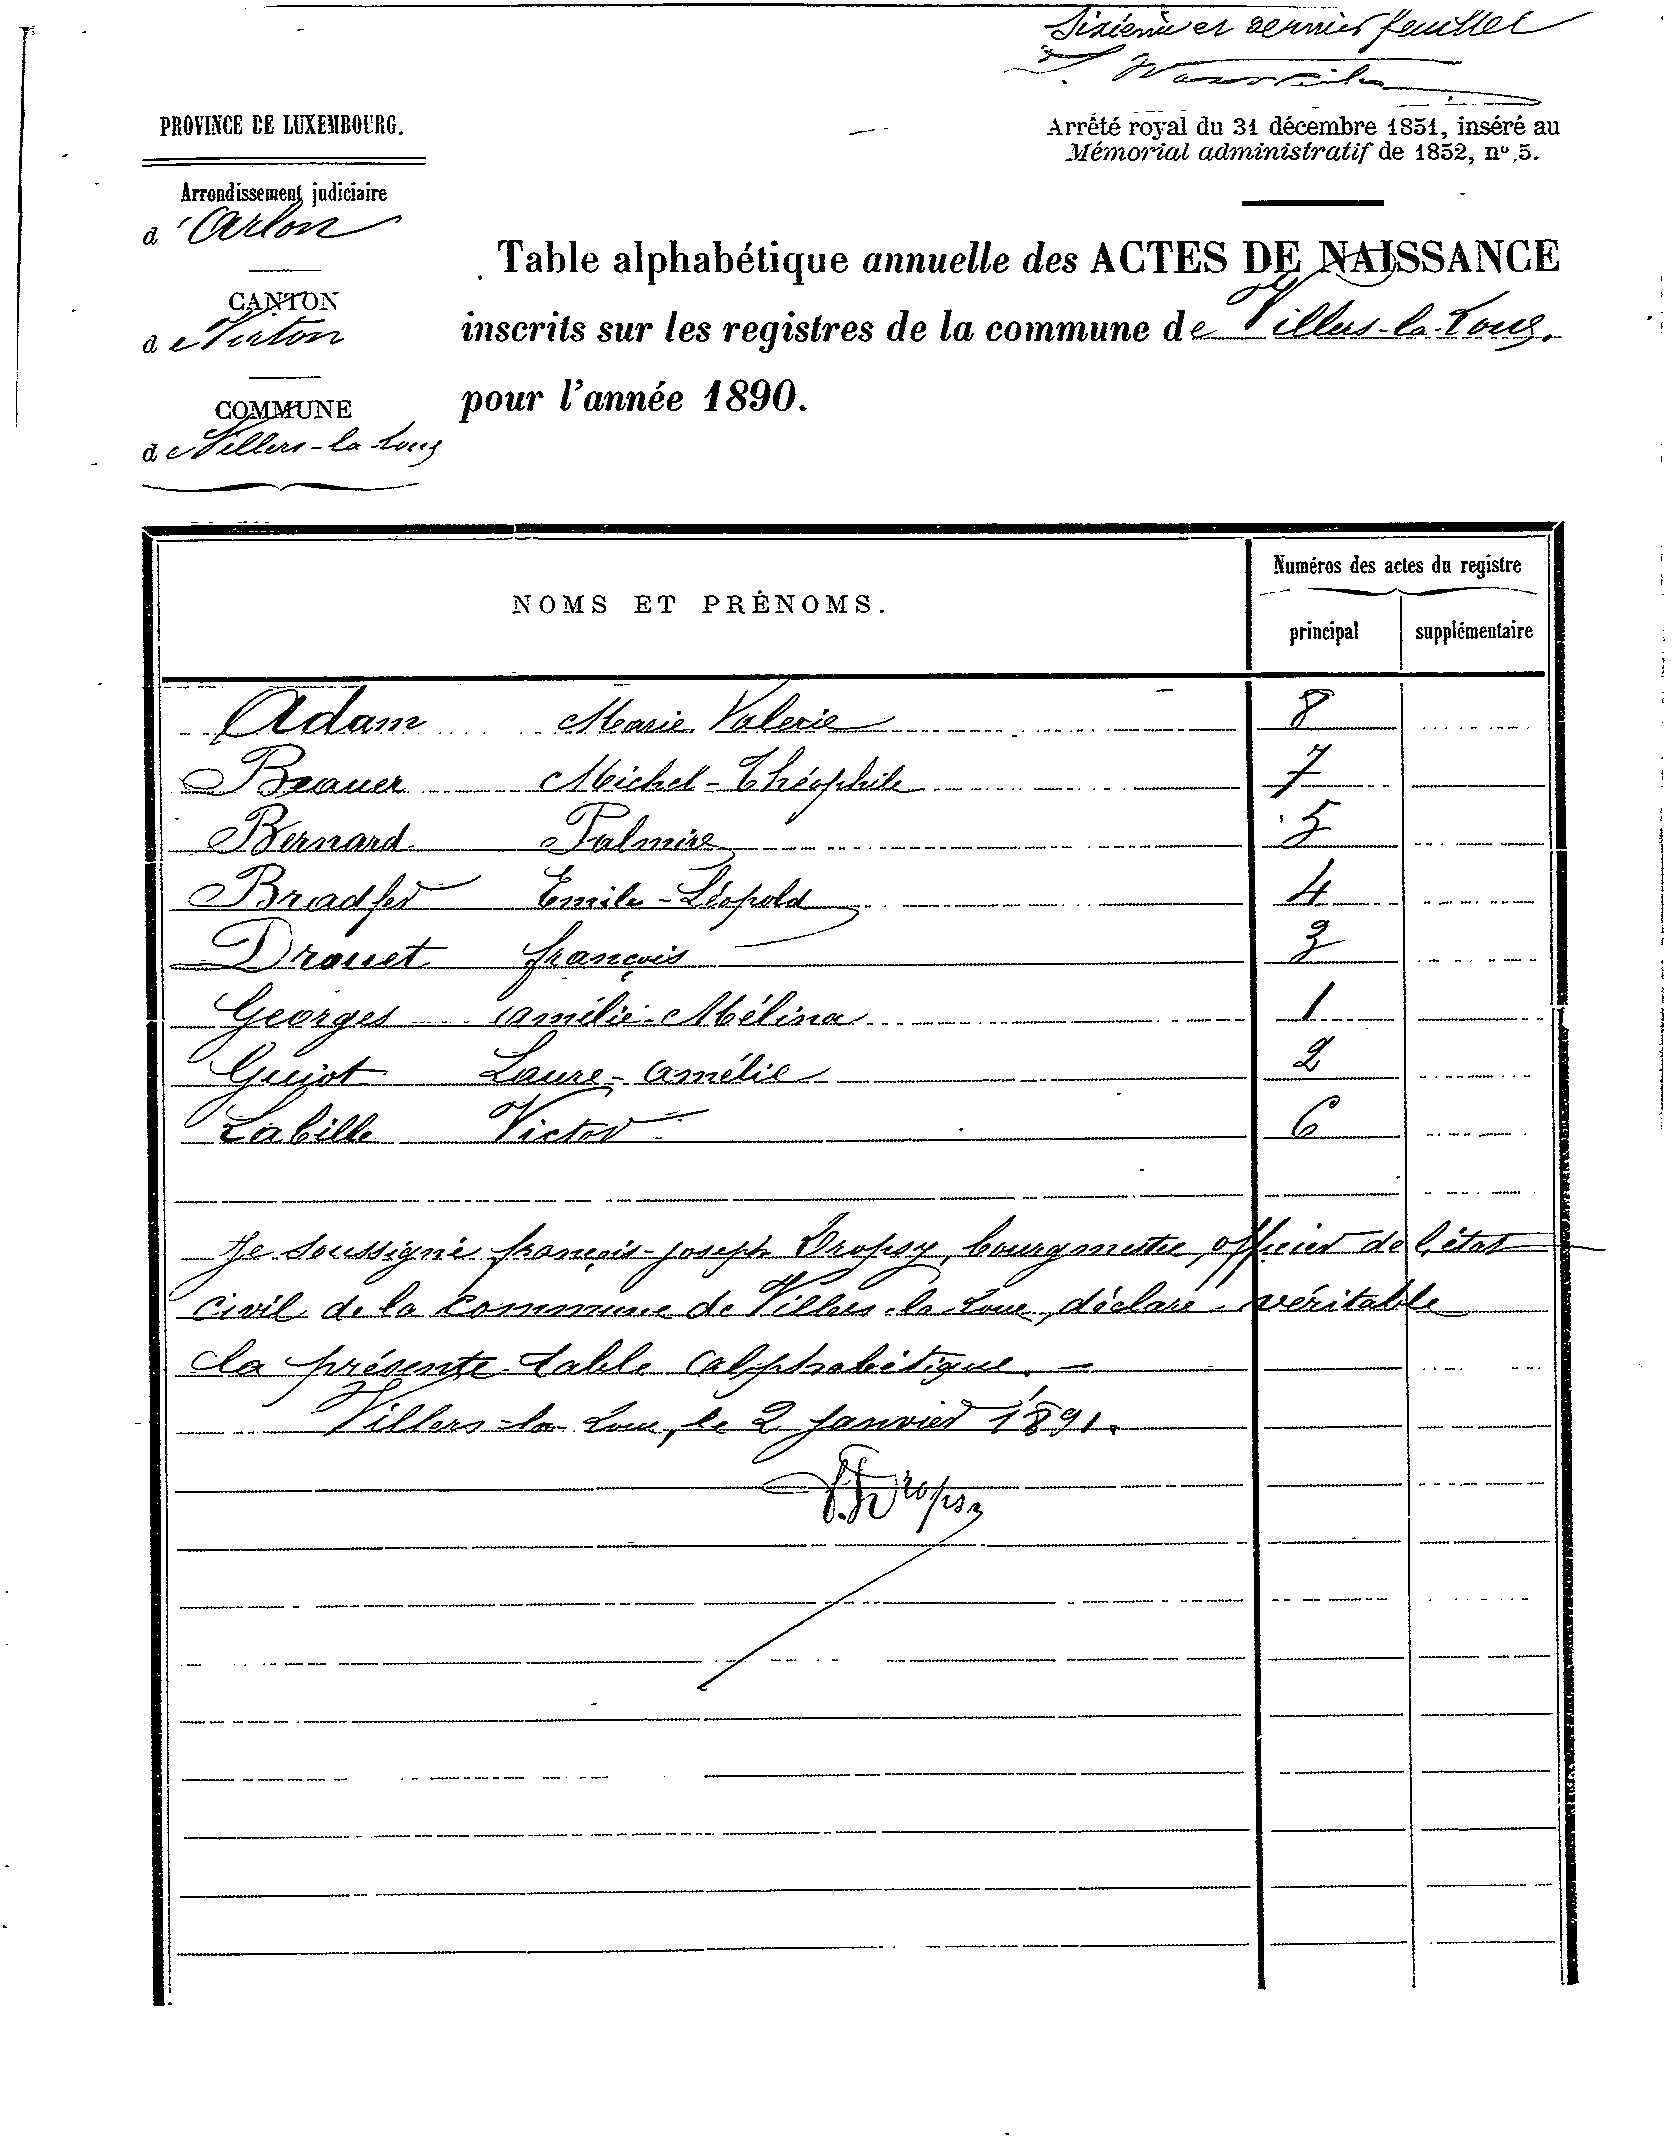 Sixième et dernier feuillet
PROVINCE DE LUXEMBOURG.
Arrêté royal du 31 décembre 1851, inséré au
Mémorial administratif de 1852, nº 5.
Arrondissement judiciaire
à Arlon
CANTON
de Virton
COMMUNE
de Villers-la-Loue
Table alphabétique annuelle des ACTES DE NAISSANCE
inscrits sur les registres de la commune de Villers-la-Loue.
pour l'année 1890.
NOMS ET PRÉNOMS.
Numéros des actes du registre
principal supplémentaire
Adam Marie Valerie 8
Michel-Théophile 7
Bernard Palmire 5
Bradfer Emile-Léopold 4
Drouet françois 3
Georges amélie-Mélina 1
Guiot Laure-amélie 2
Labille Victor 6
Je soussigné françois-joseph Dropsy, bourgmestre, officier de l'état
civil de la commune de Villers-la-Loue, déclare véritable
la présente table alphabétique.
Villers-la-Loue, le 2 janvier 1891.
Dropsy